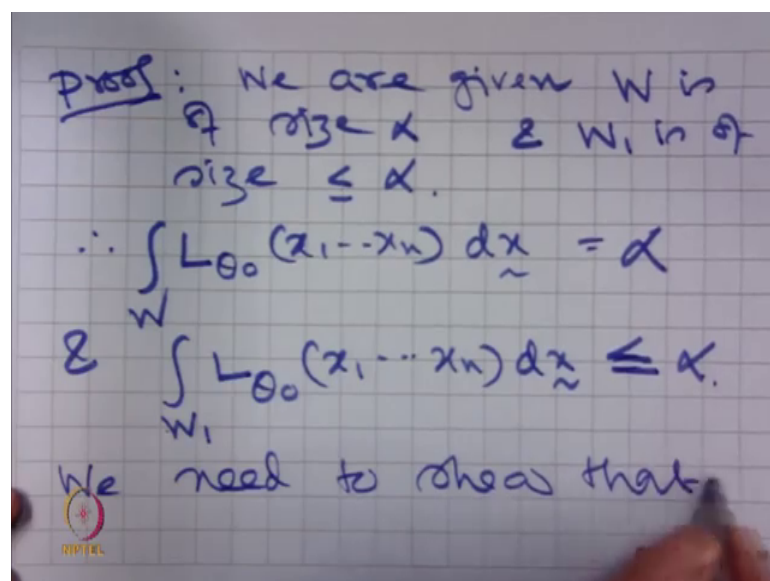 Proof: We are given W is
of size α & W₁ is of
size ≤ α.
∴ ∫_W L_θ₀ (x₁ --- xₙ) dx̰ = α
& ∫_W₁ L_θ₀ (x₁ --- xₙ) dx̰ ≤ α.
We need to show that
NPTEL